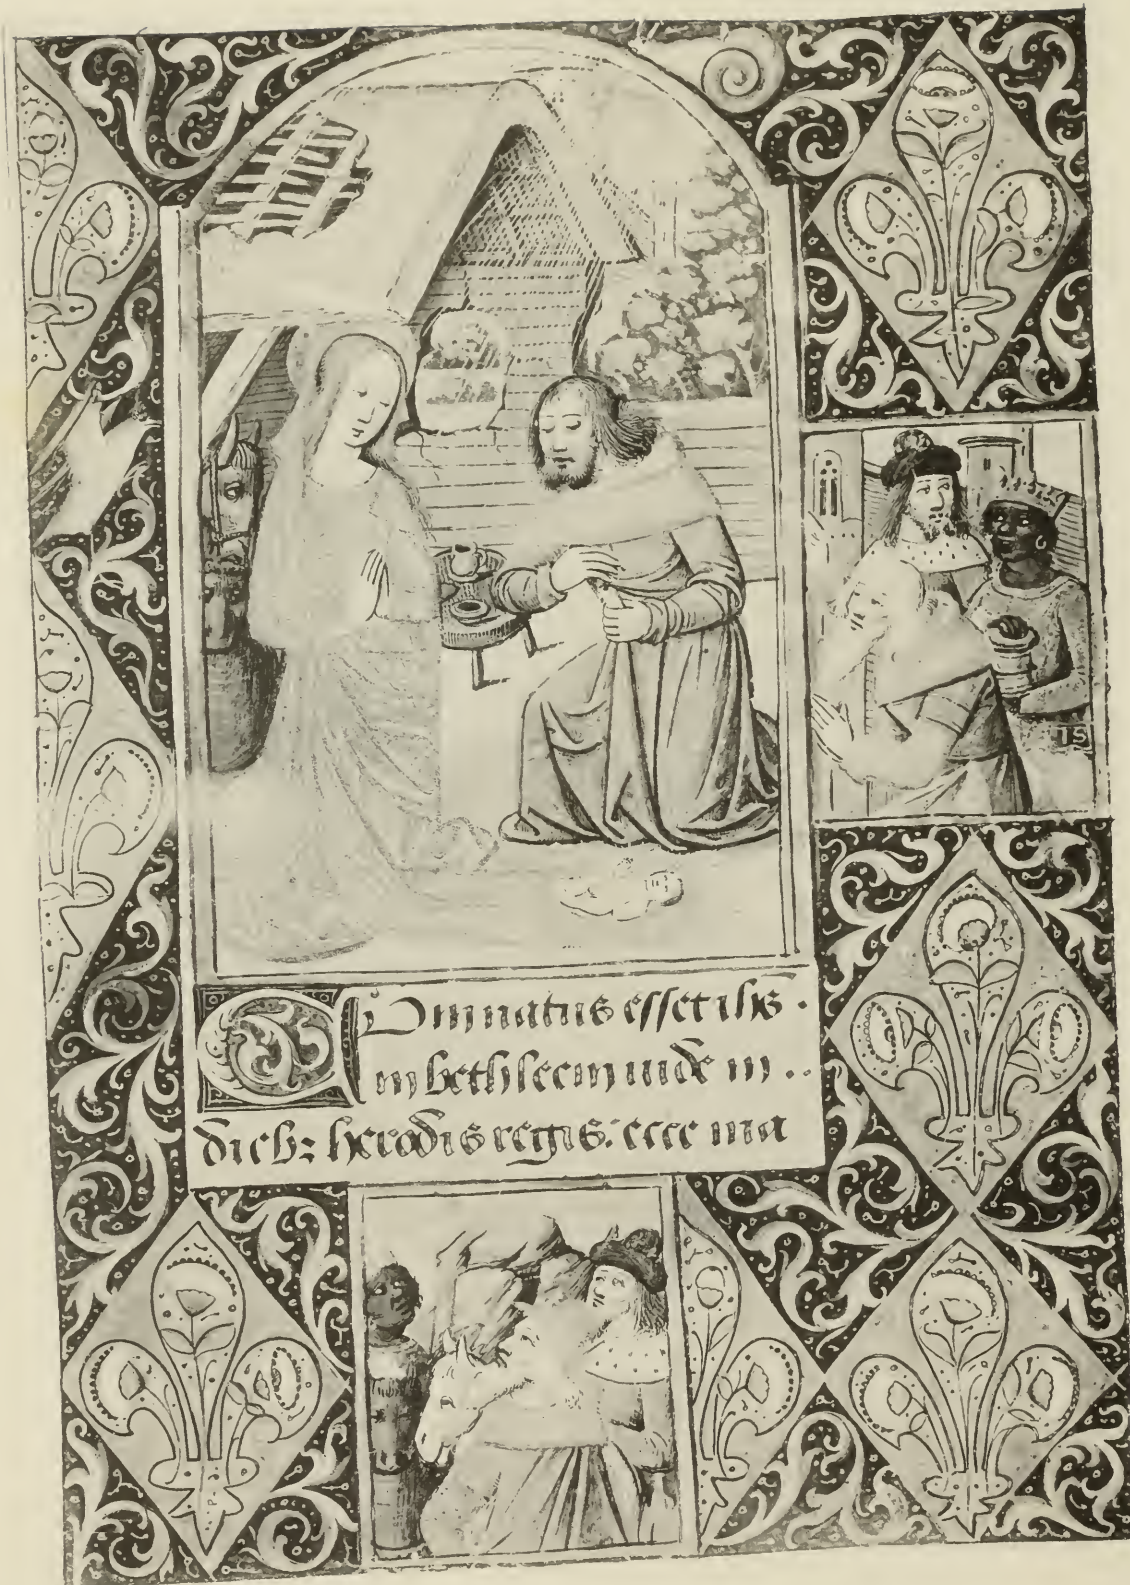 CUm natus esset ihs̄ ·
in bethleem iude in . .
dieb; herodis regis: ecce ma